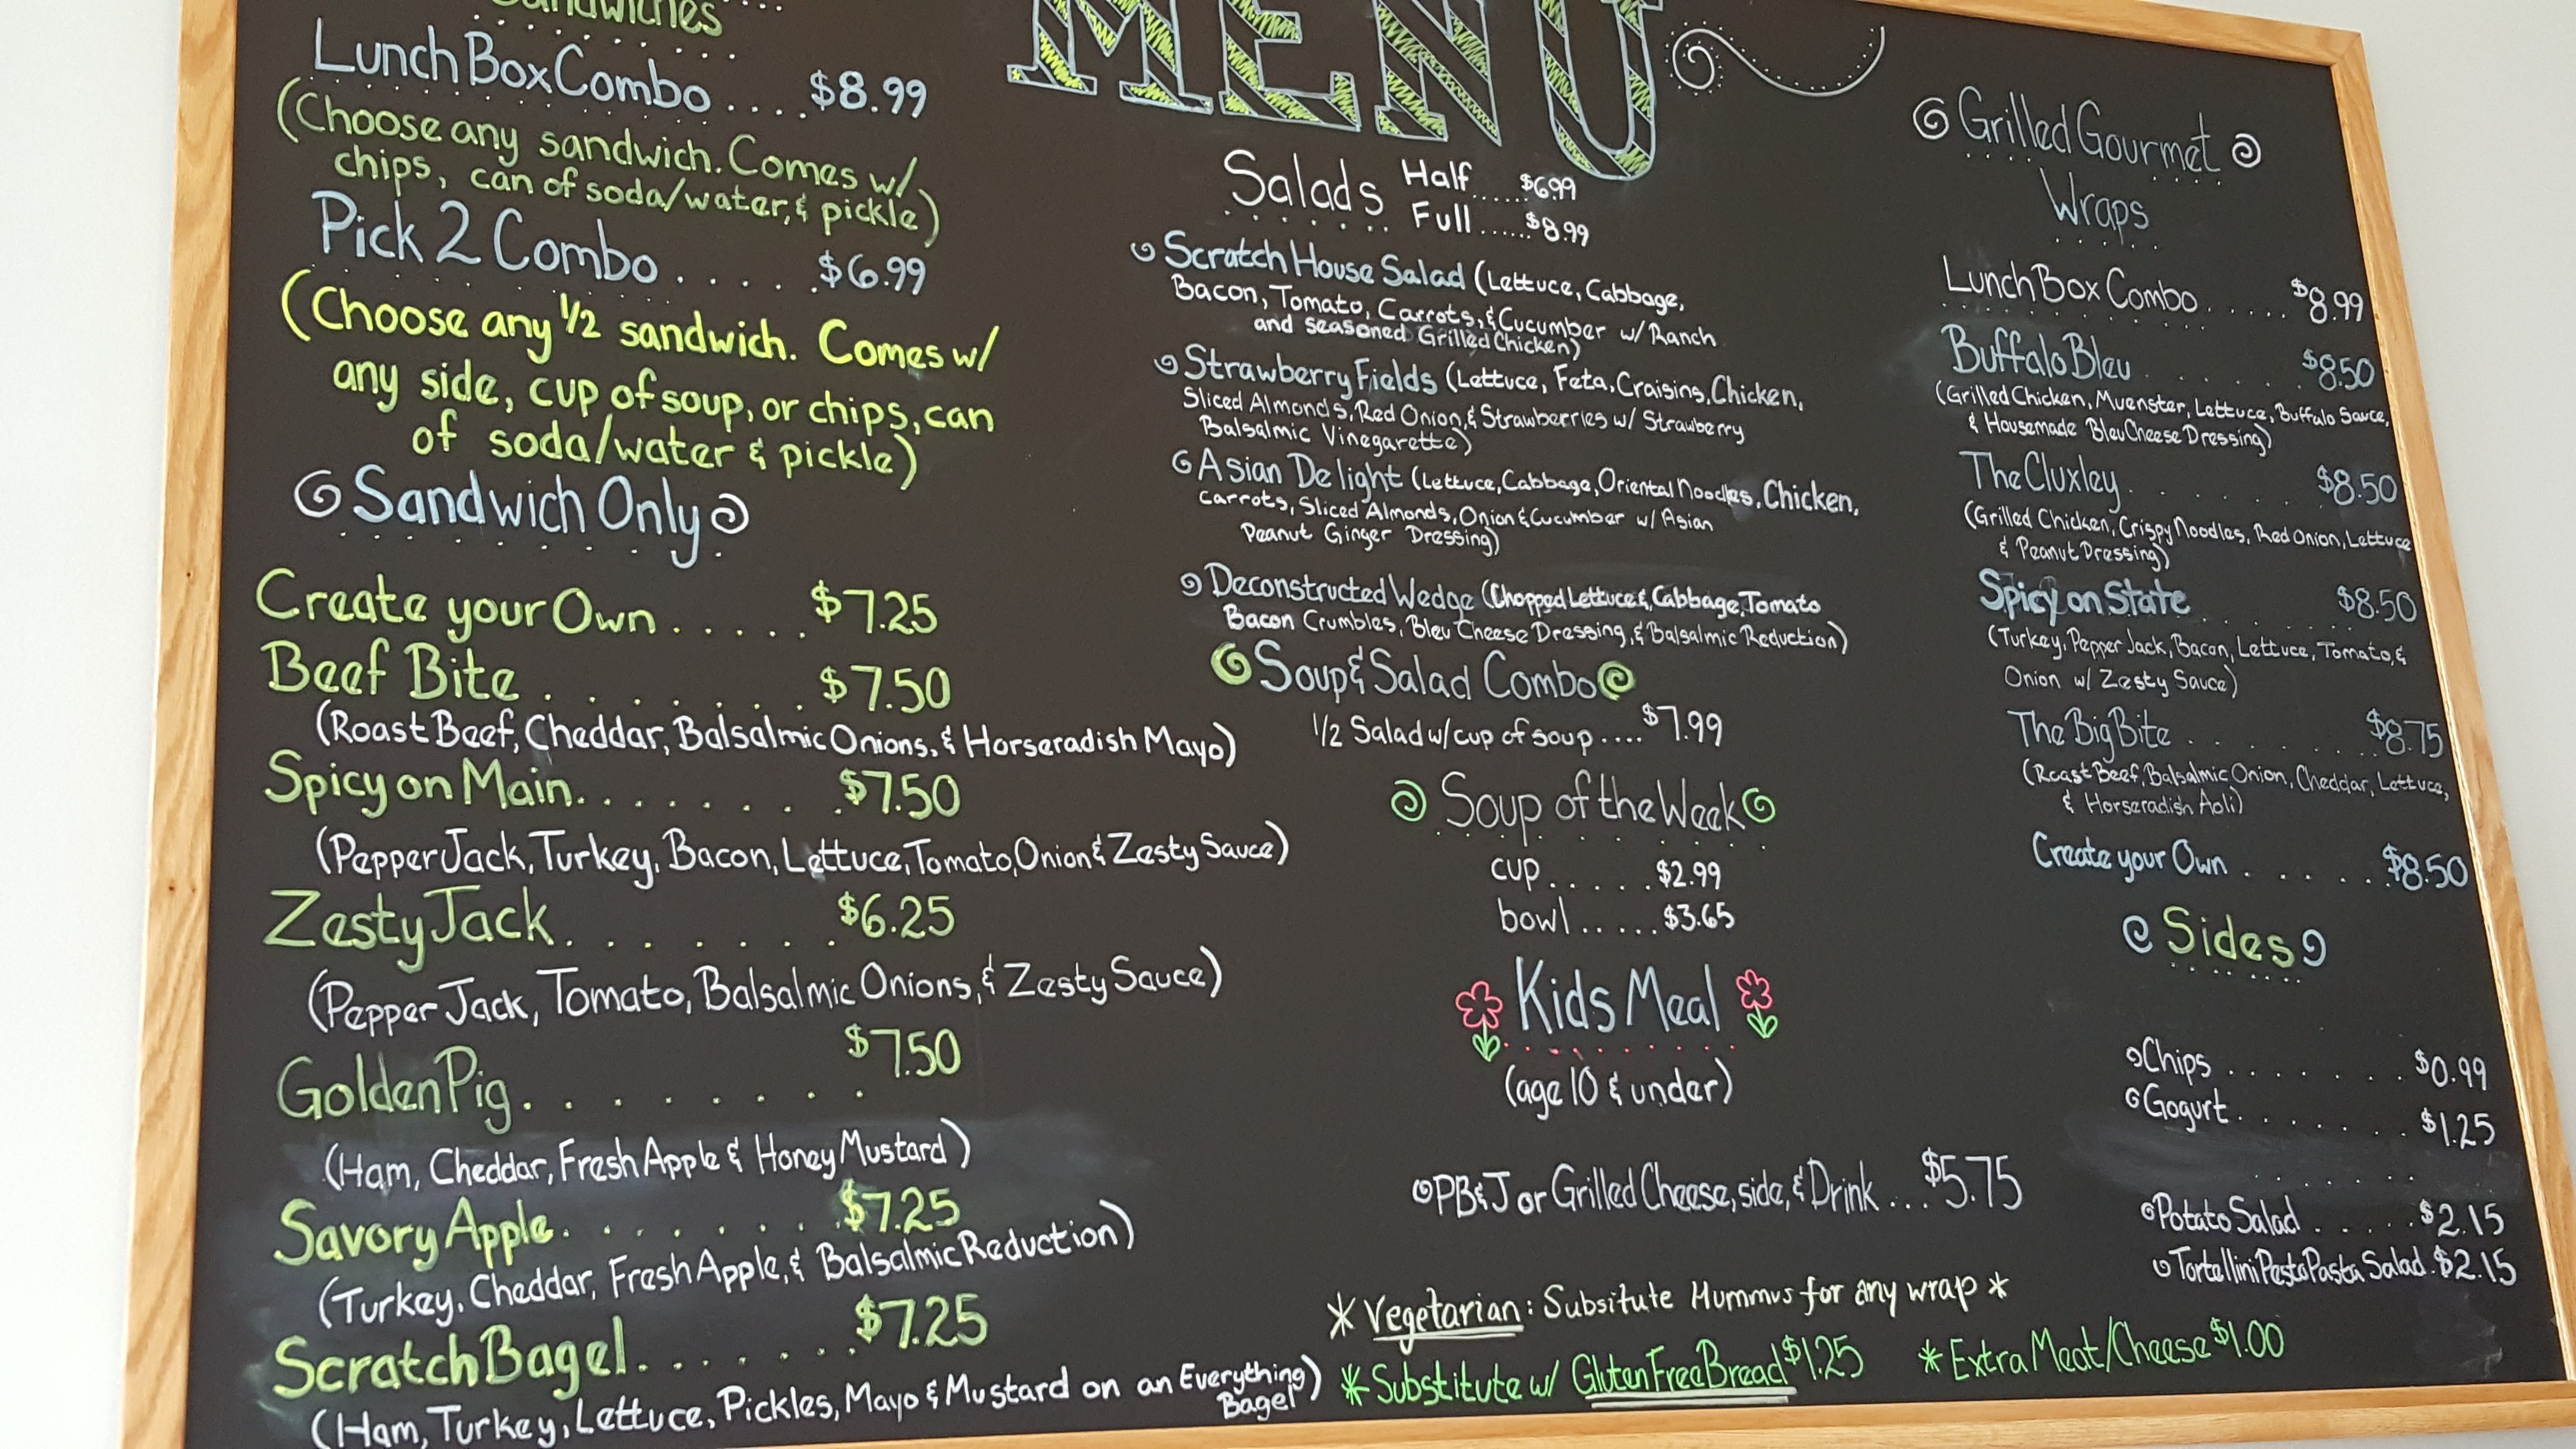 Sandwiches
MENU
Lunch Box Combo .... $8.99
(Choose any sandwich. Comes w/
chips, can of soda/water, & pickle)
Pick 2 Combo ..... $6.99
(Choose any 1/2 sandwich. Comes w/
any side, cup of soup, or chips, can
of soda/water & pickle)
Sandwich Only
Create your Own ..... $7.25
Beef Bite ....... $7.50
(Roast Beef, Cheddar, Balsalmic Onions, & Horseradish Mayo)
Spicy on Main ........ $7.50
(Pepper Jack, Turkey, Bacon, Lettuce, Tomato, Onion & Zesty Sauce)
Zesty Jack ........ $6.25
(Pepper Jack, Tomato, Balsalmic Onions, & Zesty Sauce)
Golden Pig ......... $7.50
(Ham, Cheddar, Fresh Apple & Honey Mustard)
Savory Apple ........ $7.25
(Turkey, Cheddar, Fresh Apple, & Balsalmic Reduction)
Scratch Bagel ....... $7.25
(Ham, Turkey, Lettuce, Pickles, Mayo & Mustard on an Everything
Bagel)
Salads Half ...... $6.99
Full ...... $8.99
Scratch House Salad (Lettuce, Cabbage,
Bacon, Tomato, Carrots, & Cucumber w/ Ranch
and seasoned Grilled Chicken)
Strawberry Fields (Lettuce, Feta, Craisins, Chicken,
Sliced Almonds, Red Onion, & Strawberries w/ Strawberry
Balsalmic Vinegarette)
Asian Delight (Lettuce, Cabbage, Oriental Noodles, Chicken,
Carrots, Sliced Almonds, Onion & Cucumber w/ Asian
Peanut Ginger Dressing)
Deconstructed Wedge (Chopped Lettuce &, Cabbage, Tomato
Bacon Crumbles, Bleu Cheese Dressing, & Balsalmic Reduction)
Soup & Salad Combo
1/2 Salad w/ cup of soup .... $7.99
Soup of the Week
cup ...... $2.99
bowl ..... $3.65
Kids Meal
(age 10 & under)
PB&J or Grilled Cheese, side, & Drink ... $5.75
*Vegetarian: Subsitute Hummus for any wrap*
*Substitute w/ Gluten Free Bread $1.25 *Extra Meat/Cheese $1.00
Grilled Gourmet
Wraps
Lunch Box Combo ...... $8.99
Buffalo Bleu ....... $8.50
(Grilled Chicken, Muenster, Lettuce, Buffalo Sauce,
& Housemade Bleu Cheese Dressing)
The Cluxley ....... $8.50
(Grilled Chicken, Crispy Noodles, Red Onion, Lettuce
& Peanut Dressing)
Spicy on State ...... $8.50
(Turkey, Pepper Jack, Bacon, Lettuce, Tomato, &
Onion w/ Zesty Sauce)
The Big Bite ........ $8.75
(Roast Beef, Balsalmic Onion, Cheddar, Lettuce,
& Horseradish Aoli)
Create your Own ...... $8.50
Sides
Chips ........ $0.99
Gogurt ....... $1.25
Potato Salad ..... $2.15
Tortellini Pesto Pasta Salad . $2.15